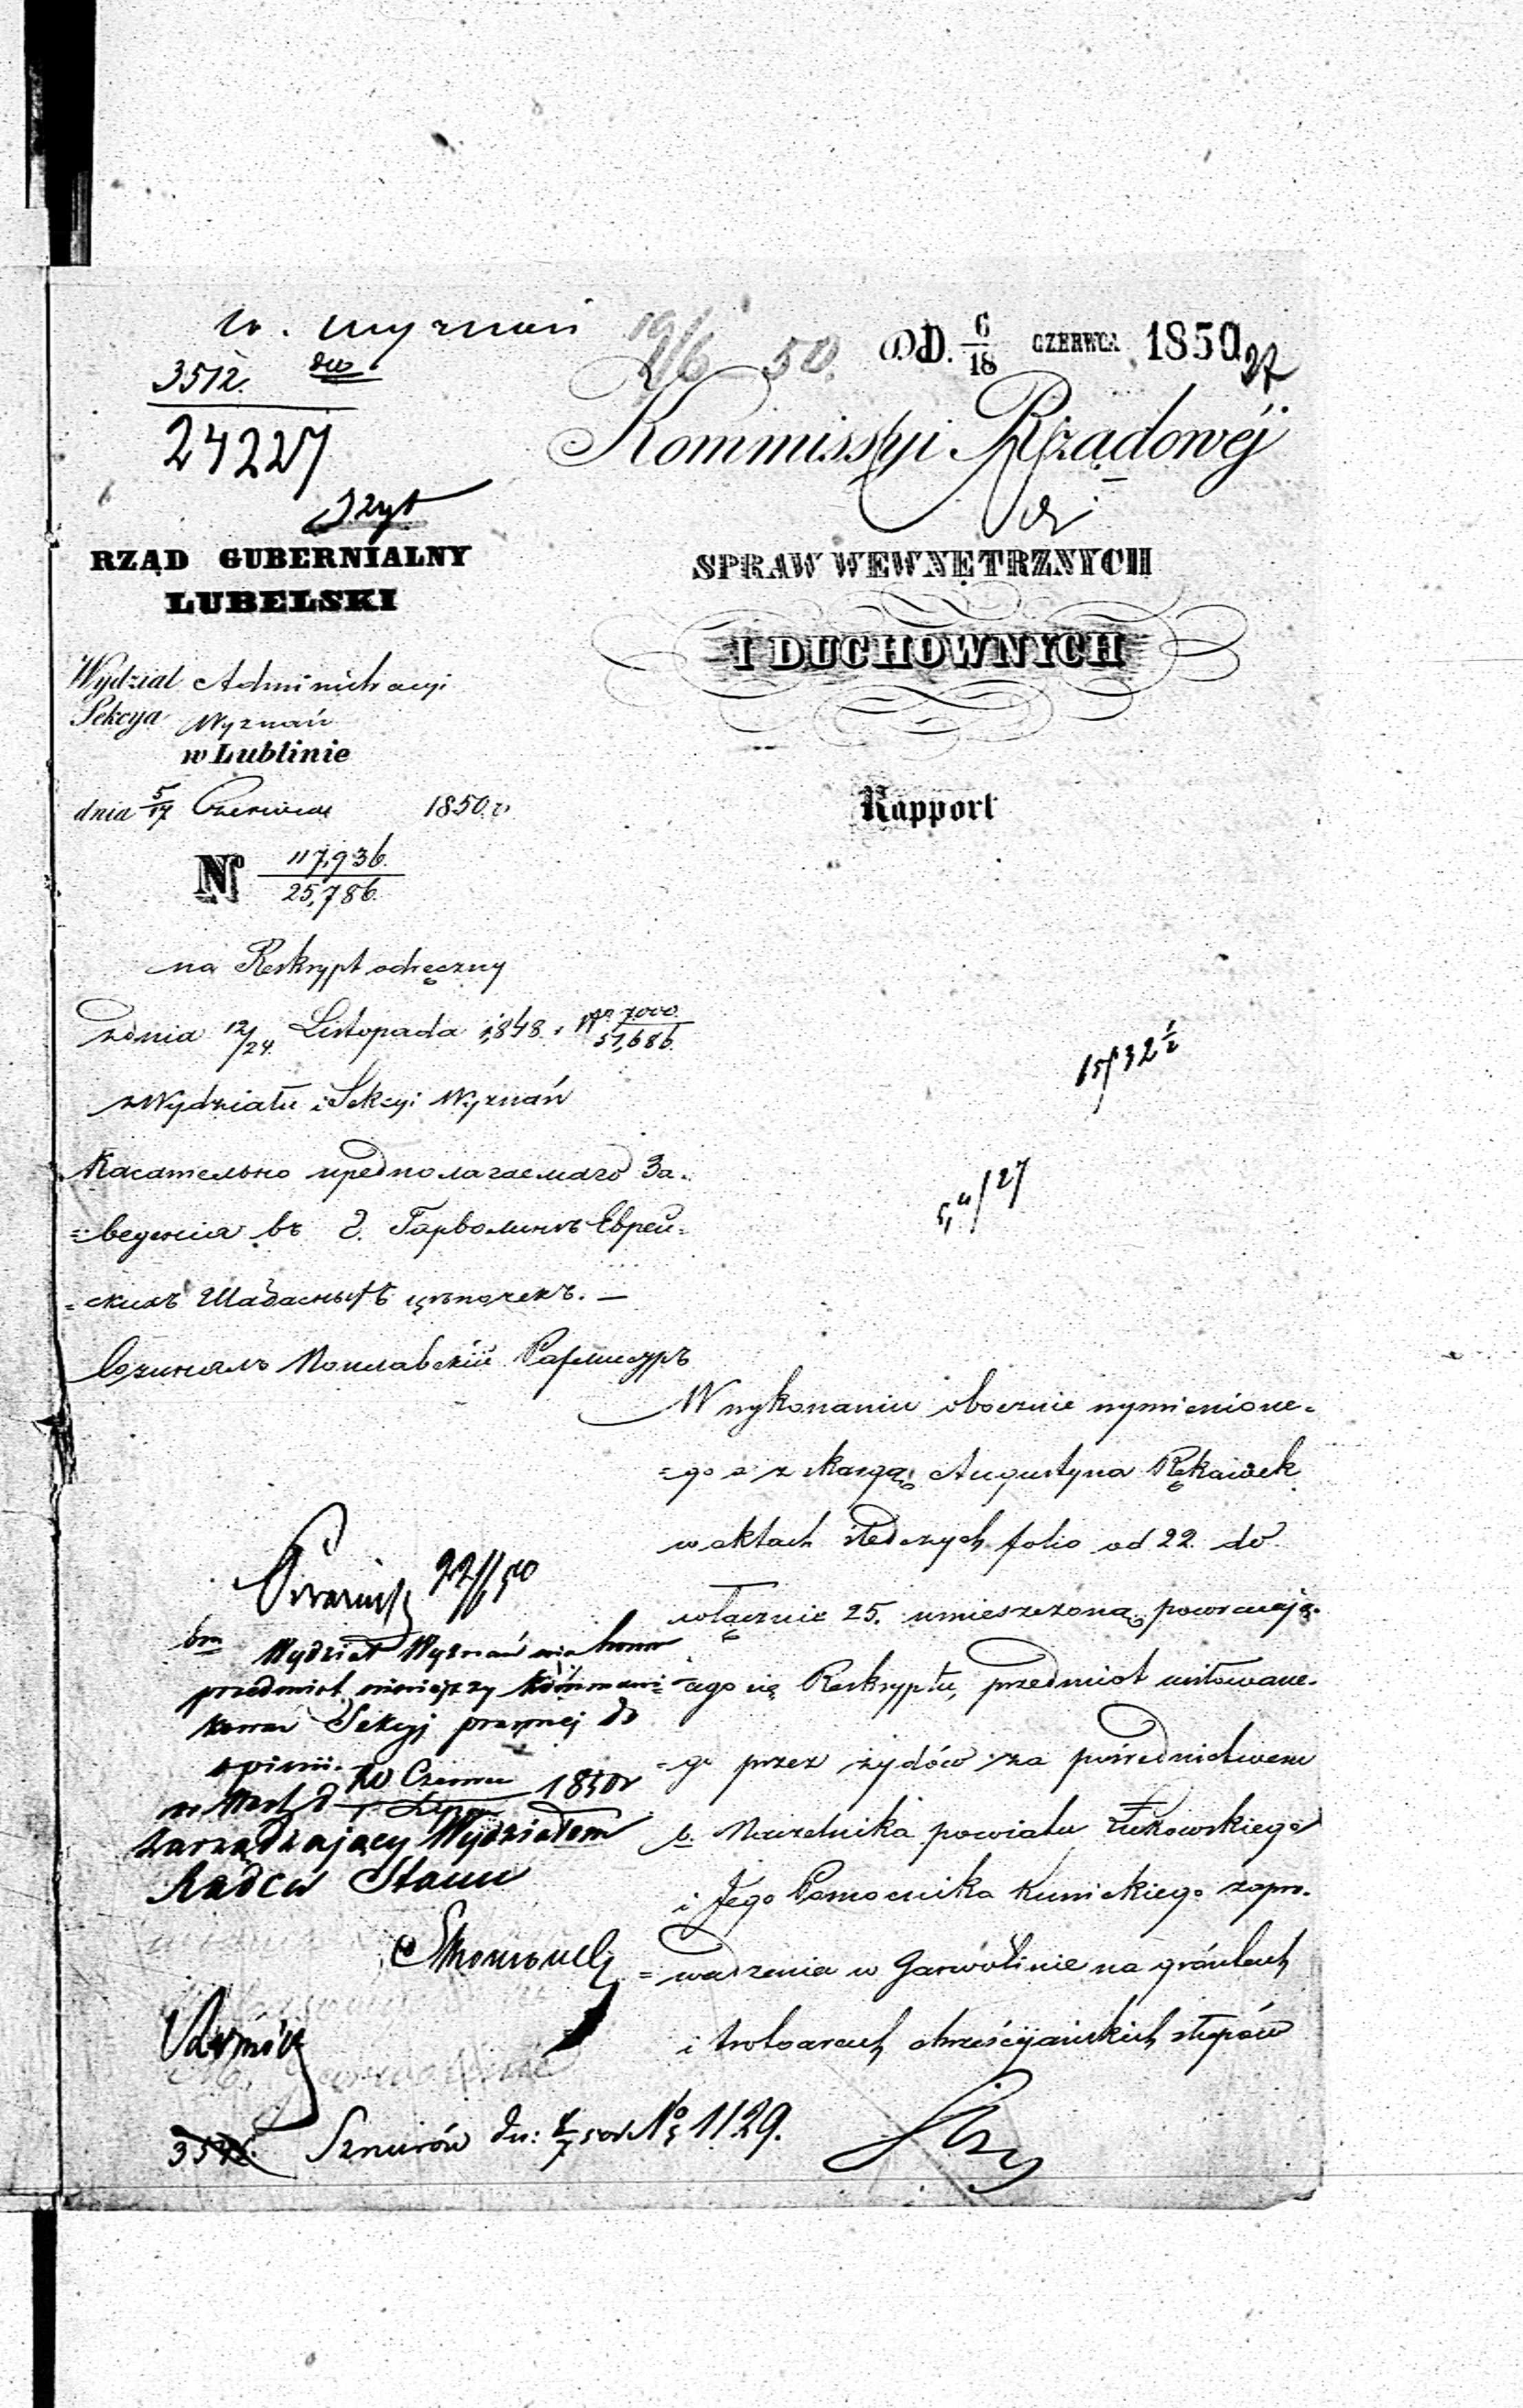 W. Wyznań
3512.
24227
19/6 50. OD. 6/18 CZERWCA 1850
27
Kommissyi Rządowéj
SPRAW WEWNĘTRZNYCH
I DUCHOWNYCH
Rapport
RZĄD GUBERNIALNY
LUBELSKI
Wydział Administracyi
Sekcya Wyznań
w Lublinie
dnia 5/17 Czerwca 1850 r.
N 117,936./25,786.
na Reskrypt odręczny
z dnia 12/24. Listopada 1848. Nr 7000./51,686.
z Wydziału i Sekcyi Wyznań
Касательно предполагаемаго За=
=веденія въ г. Гарволинѣ Еврей=
=скихъ Шабасныхъ цѣпочекъ. —
15/32 1/2
27
W wykonaniu obocznie wymienione=
=go a z skargą Augustyna Rękawek
w aktach śledczych folio od 22. do
włącznie 25. umieszczoną, powracają=
=cego się Reskryptu, przedmiot usiłowane=
=go przez żydów za pośrednictwem
b. Naczelnika powiatu Łukowskiego
i Jego Pomocnika Kunickiego zapro=
=wadzenia w Garwolinie na gruntach
i trotoarach chrześcijańskich słupów
22/6 50
Wydział Wyznań ma honor
przedmiot niniejszy kommuni=
kować Sekcyj prawnej do
opinii.
Czerwca 1850 r
Zarządzający Wydziałem
Radca Stanu
Sznurów dn: No 1129.